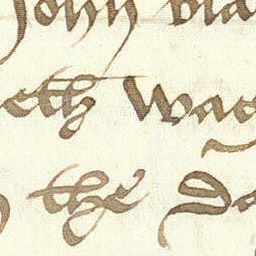 John bla
eth wa
the Da